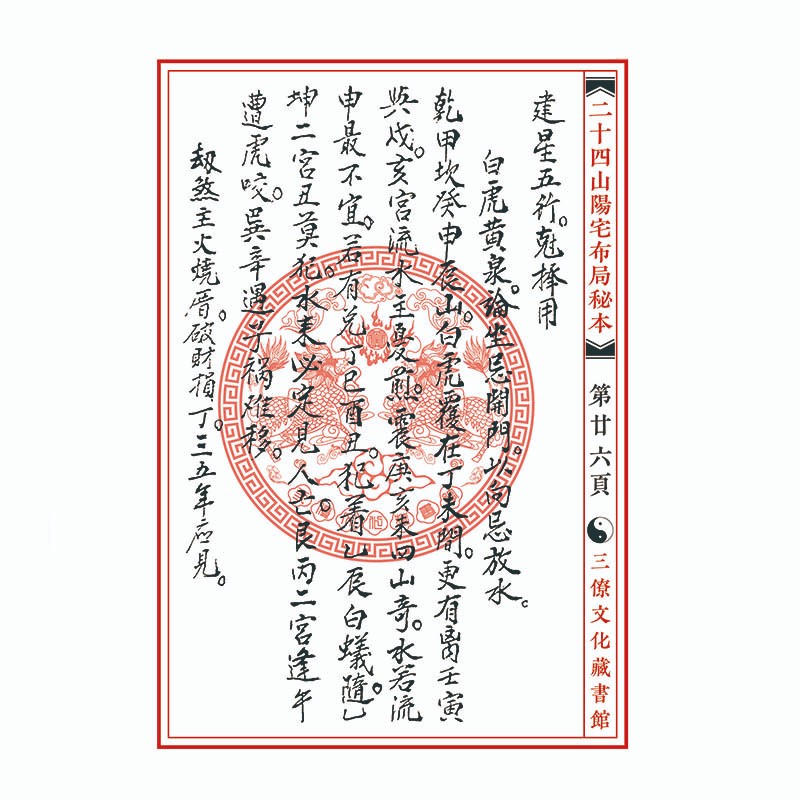 二十四山陽宅布局秘本
第廿六頁
三僚文化藏書館
建星五行。尅擇用
白虎黄泉。論坐忌開門。以向忌放水。
乾甲坎癸申辰山。白虎覆在丁未間。更有离壬寅
與戌。亥宮流水主憂煎。震庚亥未四山奇。水若流
申最不宜。若有兌丁巳酉丑。犯着乙辰白蟻隨。乙
坤二宮丑莫犯。水来必定見人亡。艮丙二宮逢午
遭虎咬。巽辛遇午禍难移。
刼煞主火燒厝。破財損丁。三五年应見。